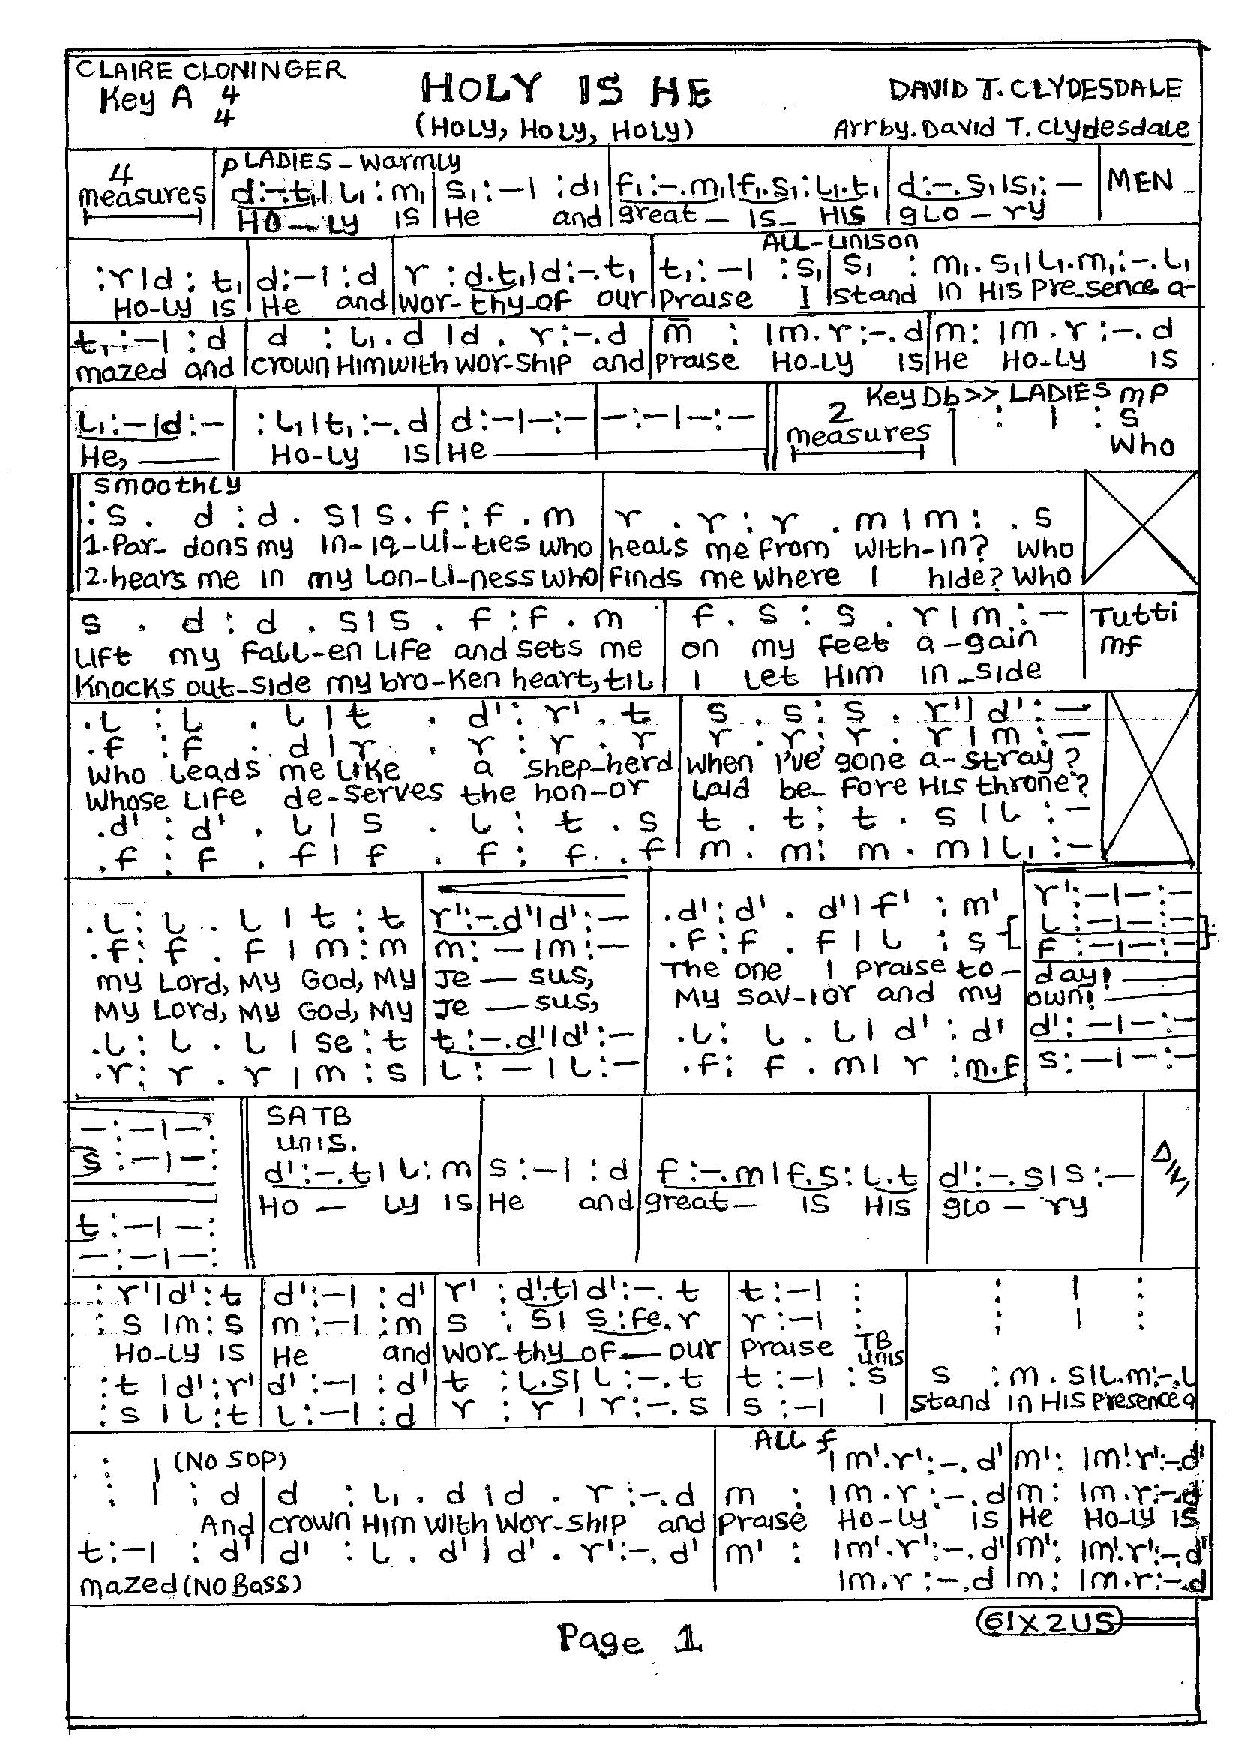 CLAIRE CLONINGER
Key A 4/4
HOLY IS HE
(HOLY, HOLY, HOLY)
DAVID T. CLYDESDALE
Arr by. David T. Clydesdale
4 measures
p LADIES - Warmly
d:-.t₁|L₁:m₁|s₁:-| :d₁|f₁:-.m₁|f₁.s₁:L₁.t₁|d:-.s₁|s₁:-
MEN
HO — LY IS He and great — IS — HIS GLO - RY
ALL-UNISON
:r|d:t₁|d:-| :d|r :d.t₁|d:-.t₁|t₁:-| :s₁|s₁ :m₁.s₁|L₁.m₁:-.L₁
HO-LY IS He and WOR-thy-OF OUR Praise I stand IN HIS Presence a-
t₁:-| :d|d :L₁.d|d.r:-.d|m : |m.r:-.d|m: |m.r:-.d
mazed and crown Him with WOR-Ship and praise HO-LY IS He HO-LY IS
Key Db>> LADIES mp
L₁:-|d:-| :L₁|t₁:-.d|d:-|-:-|-:-|-:-
2 measures
: | :s
He, — HO-LY IS He —
Who
Smoothly
:s.d:d.s|s.f:f.m|r.r:r.m|m: .s
1.Par- dons my IN-IQ-UI-ties who heals me from with-in? Who
2.hears me in my Lon-Li-ness who finds me where I hide? Who
s.d:d.s|s.f:f.m|f.s:s.r|m:-
Tutti mf
Lift my fall-en Life and sets me on my feet a-gain
Knocks out-side my bro-ken heart, til I Let HIM IN-side
.L:L.L|t.d':r'.t|s.s:s.r'|d':-
.f:f.d|r.r:r.r|r.r:r.r|m:-
Who Leads me Like a Shep-herd when I've gone a-stray?
Whose Life de-serves the hon-or Laid be-fore HIS throne?
.d':d'.L|s.L:t.s|t.t:t.s|L:-
.f:f.f|f.f:f.f|m.m:m.m|L₁:-
.L:L.L|t:t|r':-.d'|d':-|.d':d'.d'|f':m'|r':-|-:-
.f:f.f|m:m|m:-|m:-|.f:f.f|L:s|L:-|-:-
f:-|-:-
my Lord, My God, My Je — sus, The one I praise to-day!
My Lord, My God, My Je — sus, My Sav-ior and my own!
.L:L.L|se:t|t:-.d'|d':-|.L:L.L|d':d'|d':-|-:-
.r:r.r|m:s|L:-|L:-|.f:f.m|r:m.f|s:-|-:-
-:-|-:
s:-|-:
t:-|-:
-:-|-:
SATB
unis.
d':-.t|L:m|s:-| :d|f:-.m|f.s:L.t|d':-.s|s:-
DIV
HO — LY IS He and great — IS HIS GLO - RY
:r'|d':t|d':-| :d'|r' :d'.t|d':-.t|t:-| : | : | :
:s|m:s|m:-| :m|s :s|s:fe.r|r:-| : | : | :
HO-LY IS He and WOR-thy-OF — OUR praise
TB unis
:t|d':r'|d':-| :d'|t :L.s|L:-.t|t:-| :s|s :m.s|L.m:-.L
:s|L:t|L:-| :d|r :r|r:-.s|s:-| I stand IN HIS Presence a
: | (NO SOP)
ALL f
|m'.r':-.d'|m': |m'.r':-.d'
: | :d|d :L₁.d|d.r:-.d|m : |m.r:-.d|m: |m.r:-.d
And crown HIM With WOR-Ship and Praise HO-LY IS He HO-LY IS
t:-| :d'|d' :L.d'|d'.r':-.d'|m' : |m'.r':-.d'|m': |m'.r':-.d'
mazed (NO BASS)
|m.r:-.d|m: |m.r:-.d
Page 1
61X2US